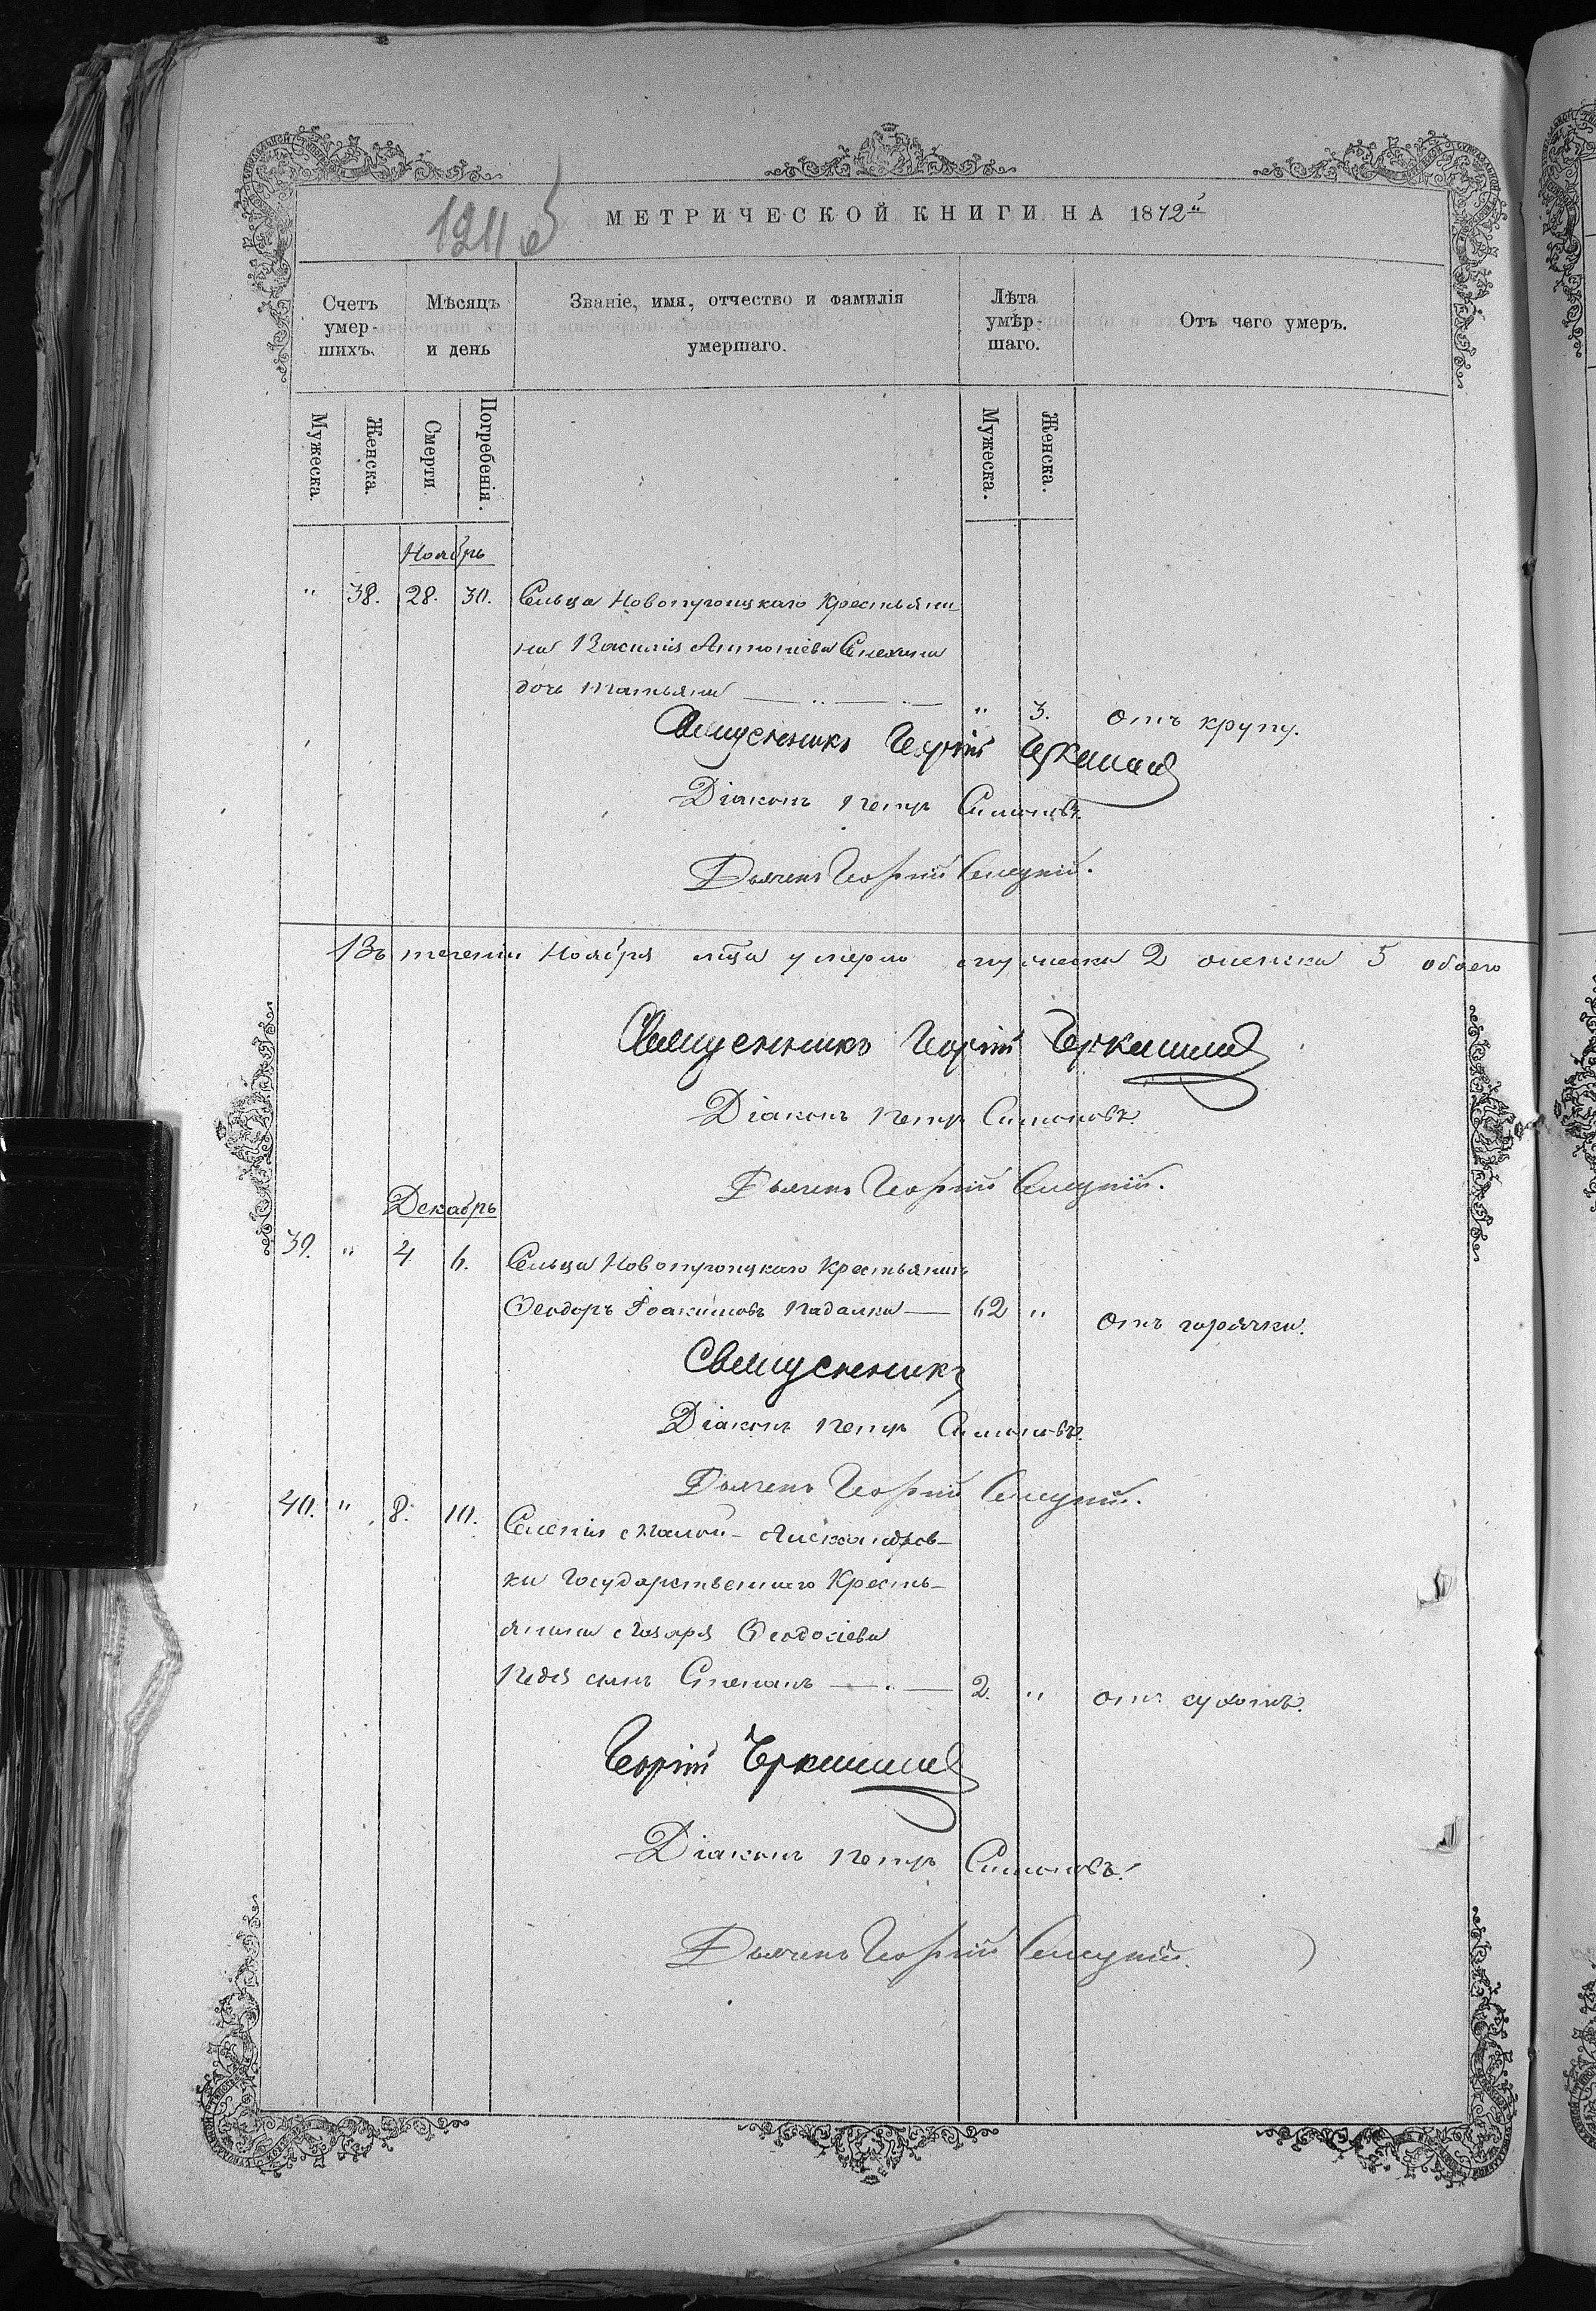 МЕТРИЧЕСКОЙ КНИГИ НА 1872й
Счетъ умер-шихъ.
Мѣсяцъ и день
Званіе, имя, отчество и фамилія умершаго.
Лѣта умѣр-шаго.
Отъ чего умеръ.
Мужеска. Женска. Смерти. Погребенія. Мужеска. Женска.
Ноябрь
" 38. 28. 30. Сельца Новотроицкаго Крестьяни
на Василія Антоніева
дочь Татьяна " 3. отъ крупу.
Священникъ Георгій
Діаконъ Петръ Симоновъ.
Дьячекъ Георгій
Въ теченіи Ноября мца умерло мужеска 2 женска 5 обоего
Священникъ Георгій
Діаконъ Петръ Симоновъ.
Дьячекъ Георгій
Декабрь
39. " 4 6. Сельца Новотроицкаго Крестьянинъ
Ѳеодоръ Іоакимовъ Падалка 62 " отъ горячки.
Священникъ
Діаконъ Петръ Симоновъ.
Дьячекъ Георгій
40. " 8. 10. Селенія Малой-Александров-
ки Государственнаго Кресть-
янина Лазаря Ѳеодосіева
сынъ Степанъ 2. " отъ сухотъ.
Георгій
Діаконъ Петръ Симоновъ.
Дьячекъ Георгій